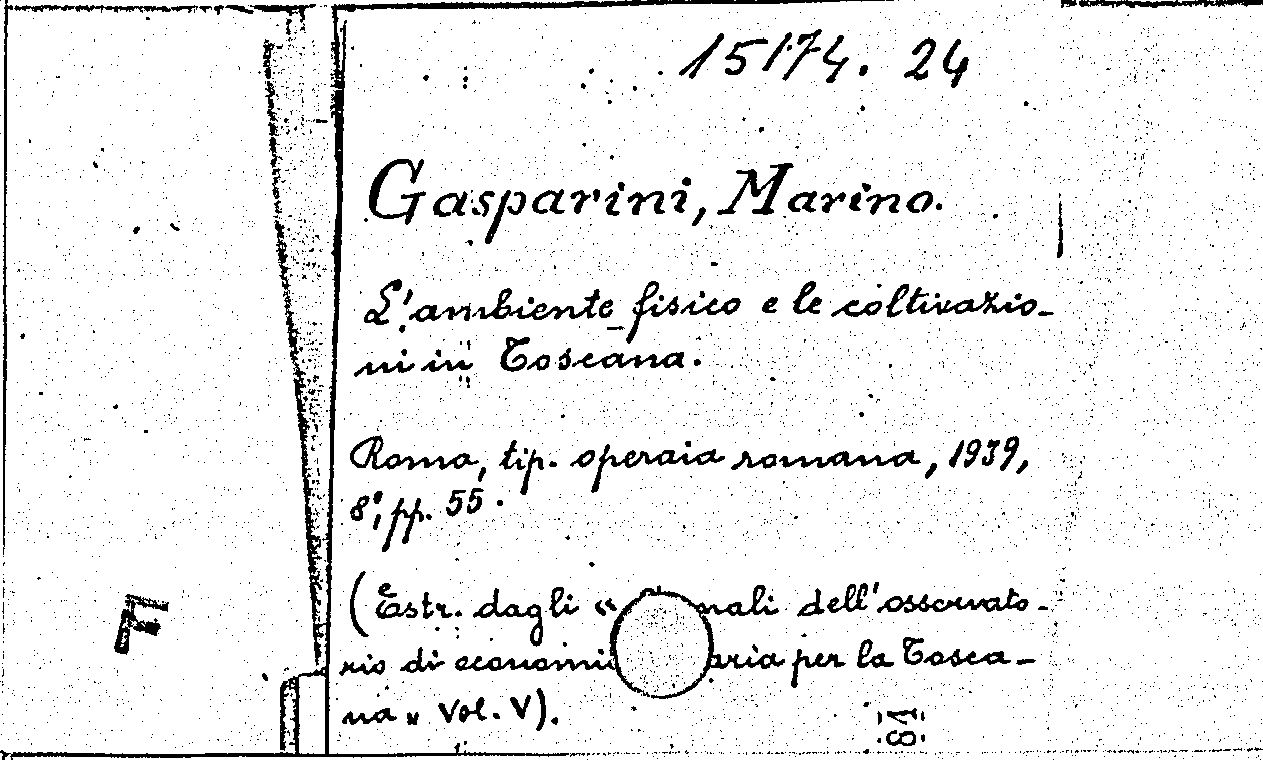 15174. 24
Gasparini, Marino.
L'ambiente fisico e le coltivazio-
ni in Toscana.
Roma, tip. operaia romana, 1939,
8°, pp. 55.
(Estr. dagli « nali dell'osservato-
rio di economi aria per la Tosca-
na » Vol. V).
F
81